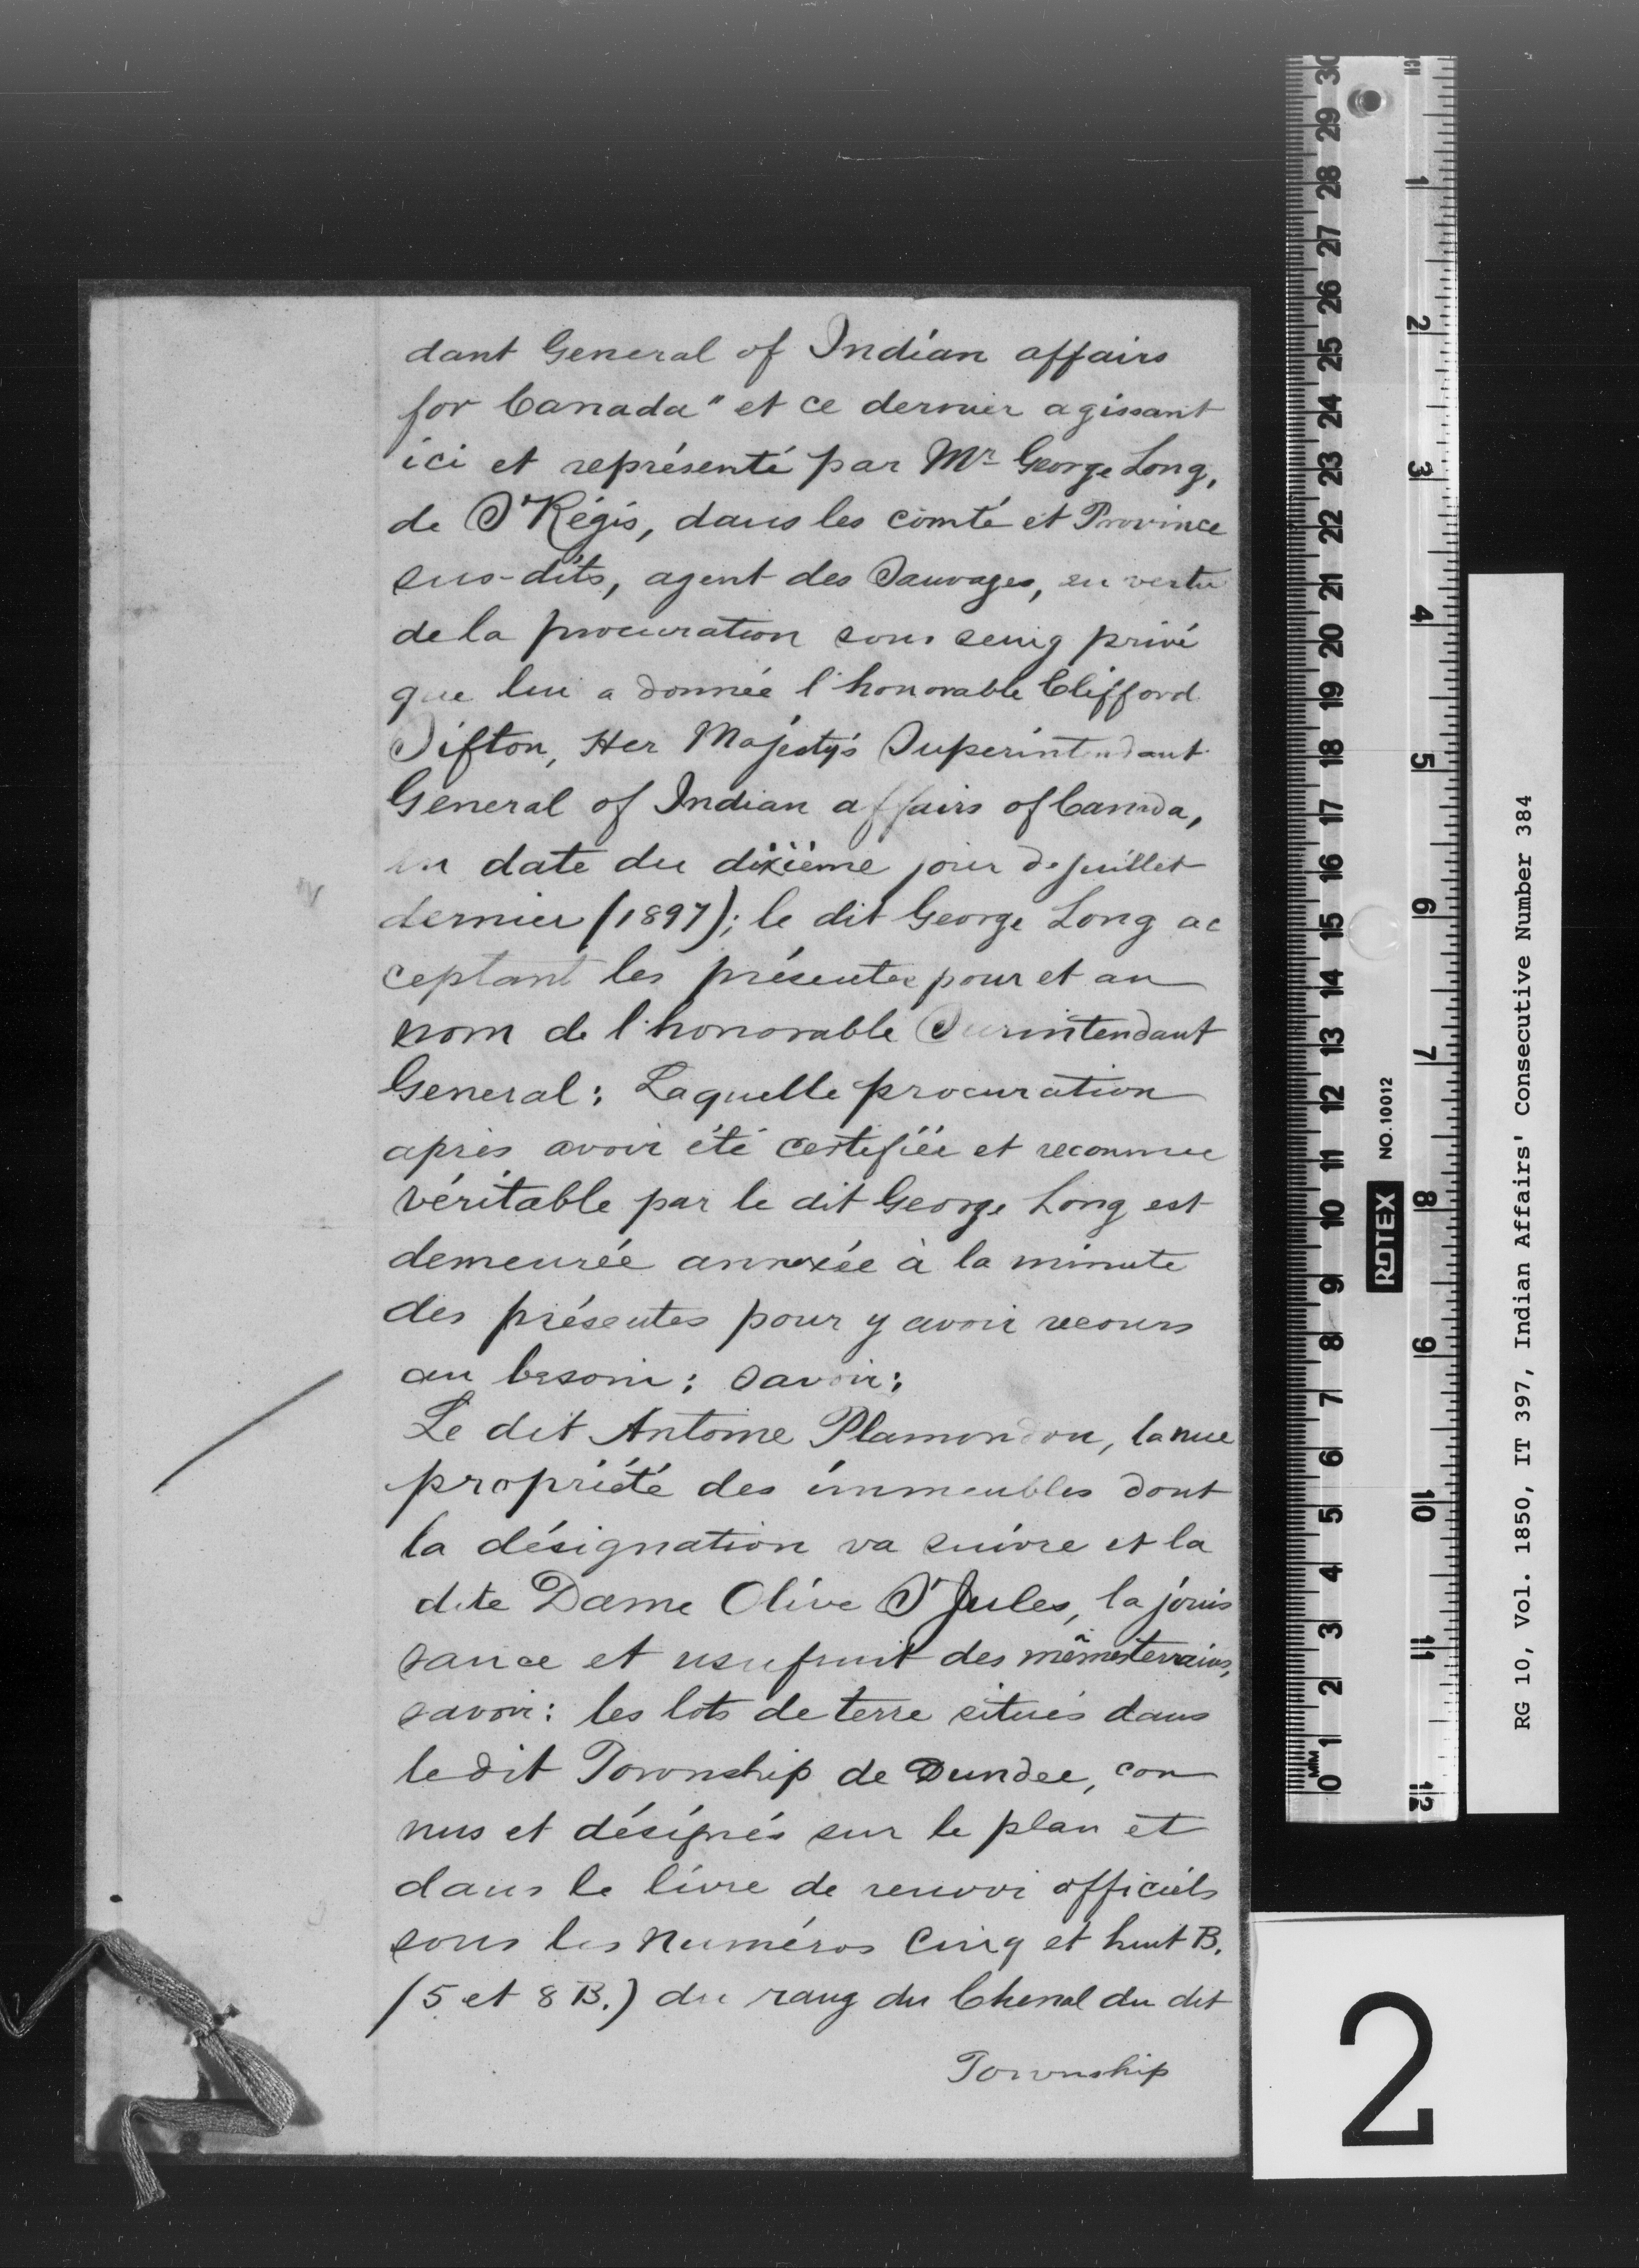 dant General of Indian affairs
for Canada" et ce dernier agissant
ici et représenté par Mr George Long,
de St Régis, dans les comté et Province
sus-dits, agent des Sauvages, en vertu
de la procuration sous seing privé
que lui a donnée l'honorable Clifford
Sifton, Her Majesty's Superintendant
General of Indian affairs of Canada,
en date du dixième jour de juillet
dernier (1897); le dit George Long ac
ceptant les présentes pour et au
nom de l'honorable Surintendant
General: Laquelle procuration
après avoir été certifiée et reconnue
véritable par le dit George Long est
demeurée annexée à la minute
des présentes pour y avoir recours
au besoin; savoir:
Le dit Antoine Plamondon, la nue
propriété des immeubles dont
la désignation va suivre et la
dite Dame Olive St Jules, la jouis
sance et usufruit des mêmes terrains,
savoir: les lots de terre situés dans
le dit Township de Dundee, con
nus et désignés sur le plan et
dans le livre de renvoi officiels
sous les numéros cinq et huit B.
(5 et 8 B.) du rang du Chenal du dit
Township
30 29 28 27 26 25 24 23 22 21 20 19 18 17 16 15 14 13 12 11 10 9 8 7 6 5 4 3 2 1 0
MM
INCH 1 2 3 4 5 6 7 8 9 10 11 12
ROTEX NO. 10012
RG 10, Vol. 1850, IT 397, Indian Affairs' Consecutive Number 384
2